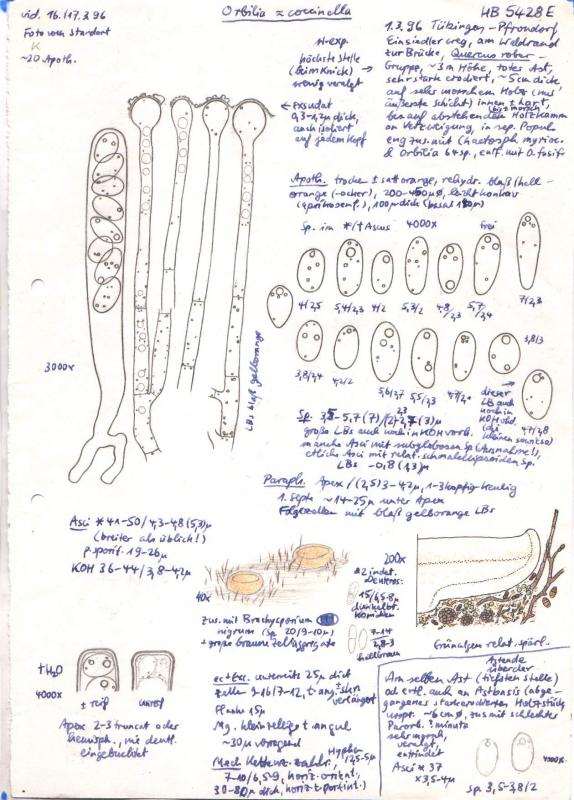 vid. 16./17.3.96
Foto vom Standort
K
~20 Apoth.
Orbilia ± coccinella
HB 5428E
1.3.96 Tübingen-Pfrondorf
Einsiedlerweg, am Waldrand
zur Brücke, Quercus robur-
Gruppe, ~3m Höhe, toter Ast,
sehr stark erodiert, ~5cm dicke
auf sehr morschem Holz (nur
äußerste Schicht) innen ± hart,
bis morsch
an Verzweigung, in sep. Popul.
eng zus. mit Chaetosph. myrioc.
& Orbilia 64sp., entf. mit O.
höchste Stelle
(beim Knick)
wenig veralgt
Exsudat
0,3-1,2µ dick,
auch isoliert
auf jedem Kopf
Apoth. trocken ± sattorange, rehydr. blaß (hell-
orange (-ocker), 200-450µ ø, leicht konkav
(aprikosenf.), 100µ dick (basal 180µ)
Sp. im */† Ascus 4000x
frei
4/2,5
5,4/2,3
4/2
5,3/2
4,8/2,3
5,7/2,4
7/2,3
3,8/2,4
4,2/2
5,6/2,7
5,5/2,3
4,7/2,0
3,8/3
4,7/2,8
dieser
LB auch
noch in
KOH vhd.
(die
kleinen sowieso)
3000x
LBs blaß gelborange
Sp. 3,5-5,7(7)/(2)2,3-2,7(3)µ
große LBs auch noch in KOH vorh.
manche Asci mit subglobosen Sp (Ausnahme!),
etliche Asci mit relat. schmalellipsoiden Sp.
LBs -0,8(1,3)µ
Paraph. Apex //(2,5)3-4,2µ, 1-3 kopfig-keulig
1. Septe ~14-25µ unter Apex
Folgezellen mit blaß gelborange LBs
Asci *41-50/4,3-4,8(5,3)µ
(breiter als üblich!)
p. sporif. 19-26µ
KOH 36-44/3,8-4,2µ
40x
zus. mit Brachysporium
nigrum (Sp. 20/9-10µ)
+ große braune Zellaggregate
200x
±2 indet.
Deuteros:
15/6,5-8µ
dunkelbr.
Konidien
7-14
2,8-3
hellbraun
Grünalgen relat. spärl.
†H2O
4000x
± reif
unreif
Apex 2-3 truncat oder
hemisph., mit deutl.
eingebuchtet
ect. Exc. unterseits 25µ dick
Zellen 9-16/7-12, ± ang. ± stkn
verlängert
Flanke 15µ
Mg. kleinzellig ± angul
~30µ vorragend
Med. Kettenz. zahlr., Hyphen
2,5-5µ
7-10/6,5-9, horiz. orient.
30-80µ dick, horiz. ± orient.)
Astende
über der
Am selben Ast (tiefsten Stelle)
od entl. auch an Astbasis (abge-
gangenes stark erodiertes Holzstück
urspr. ~6cm ø, zus mit schlechter
Parorb. ? minuta
sehr morsch,
veralgt
entrindet
Asci *37
x3,5-4µ
4000x
Sp 3,5-3,8/2